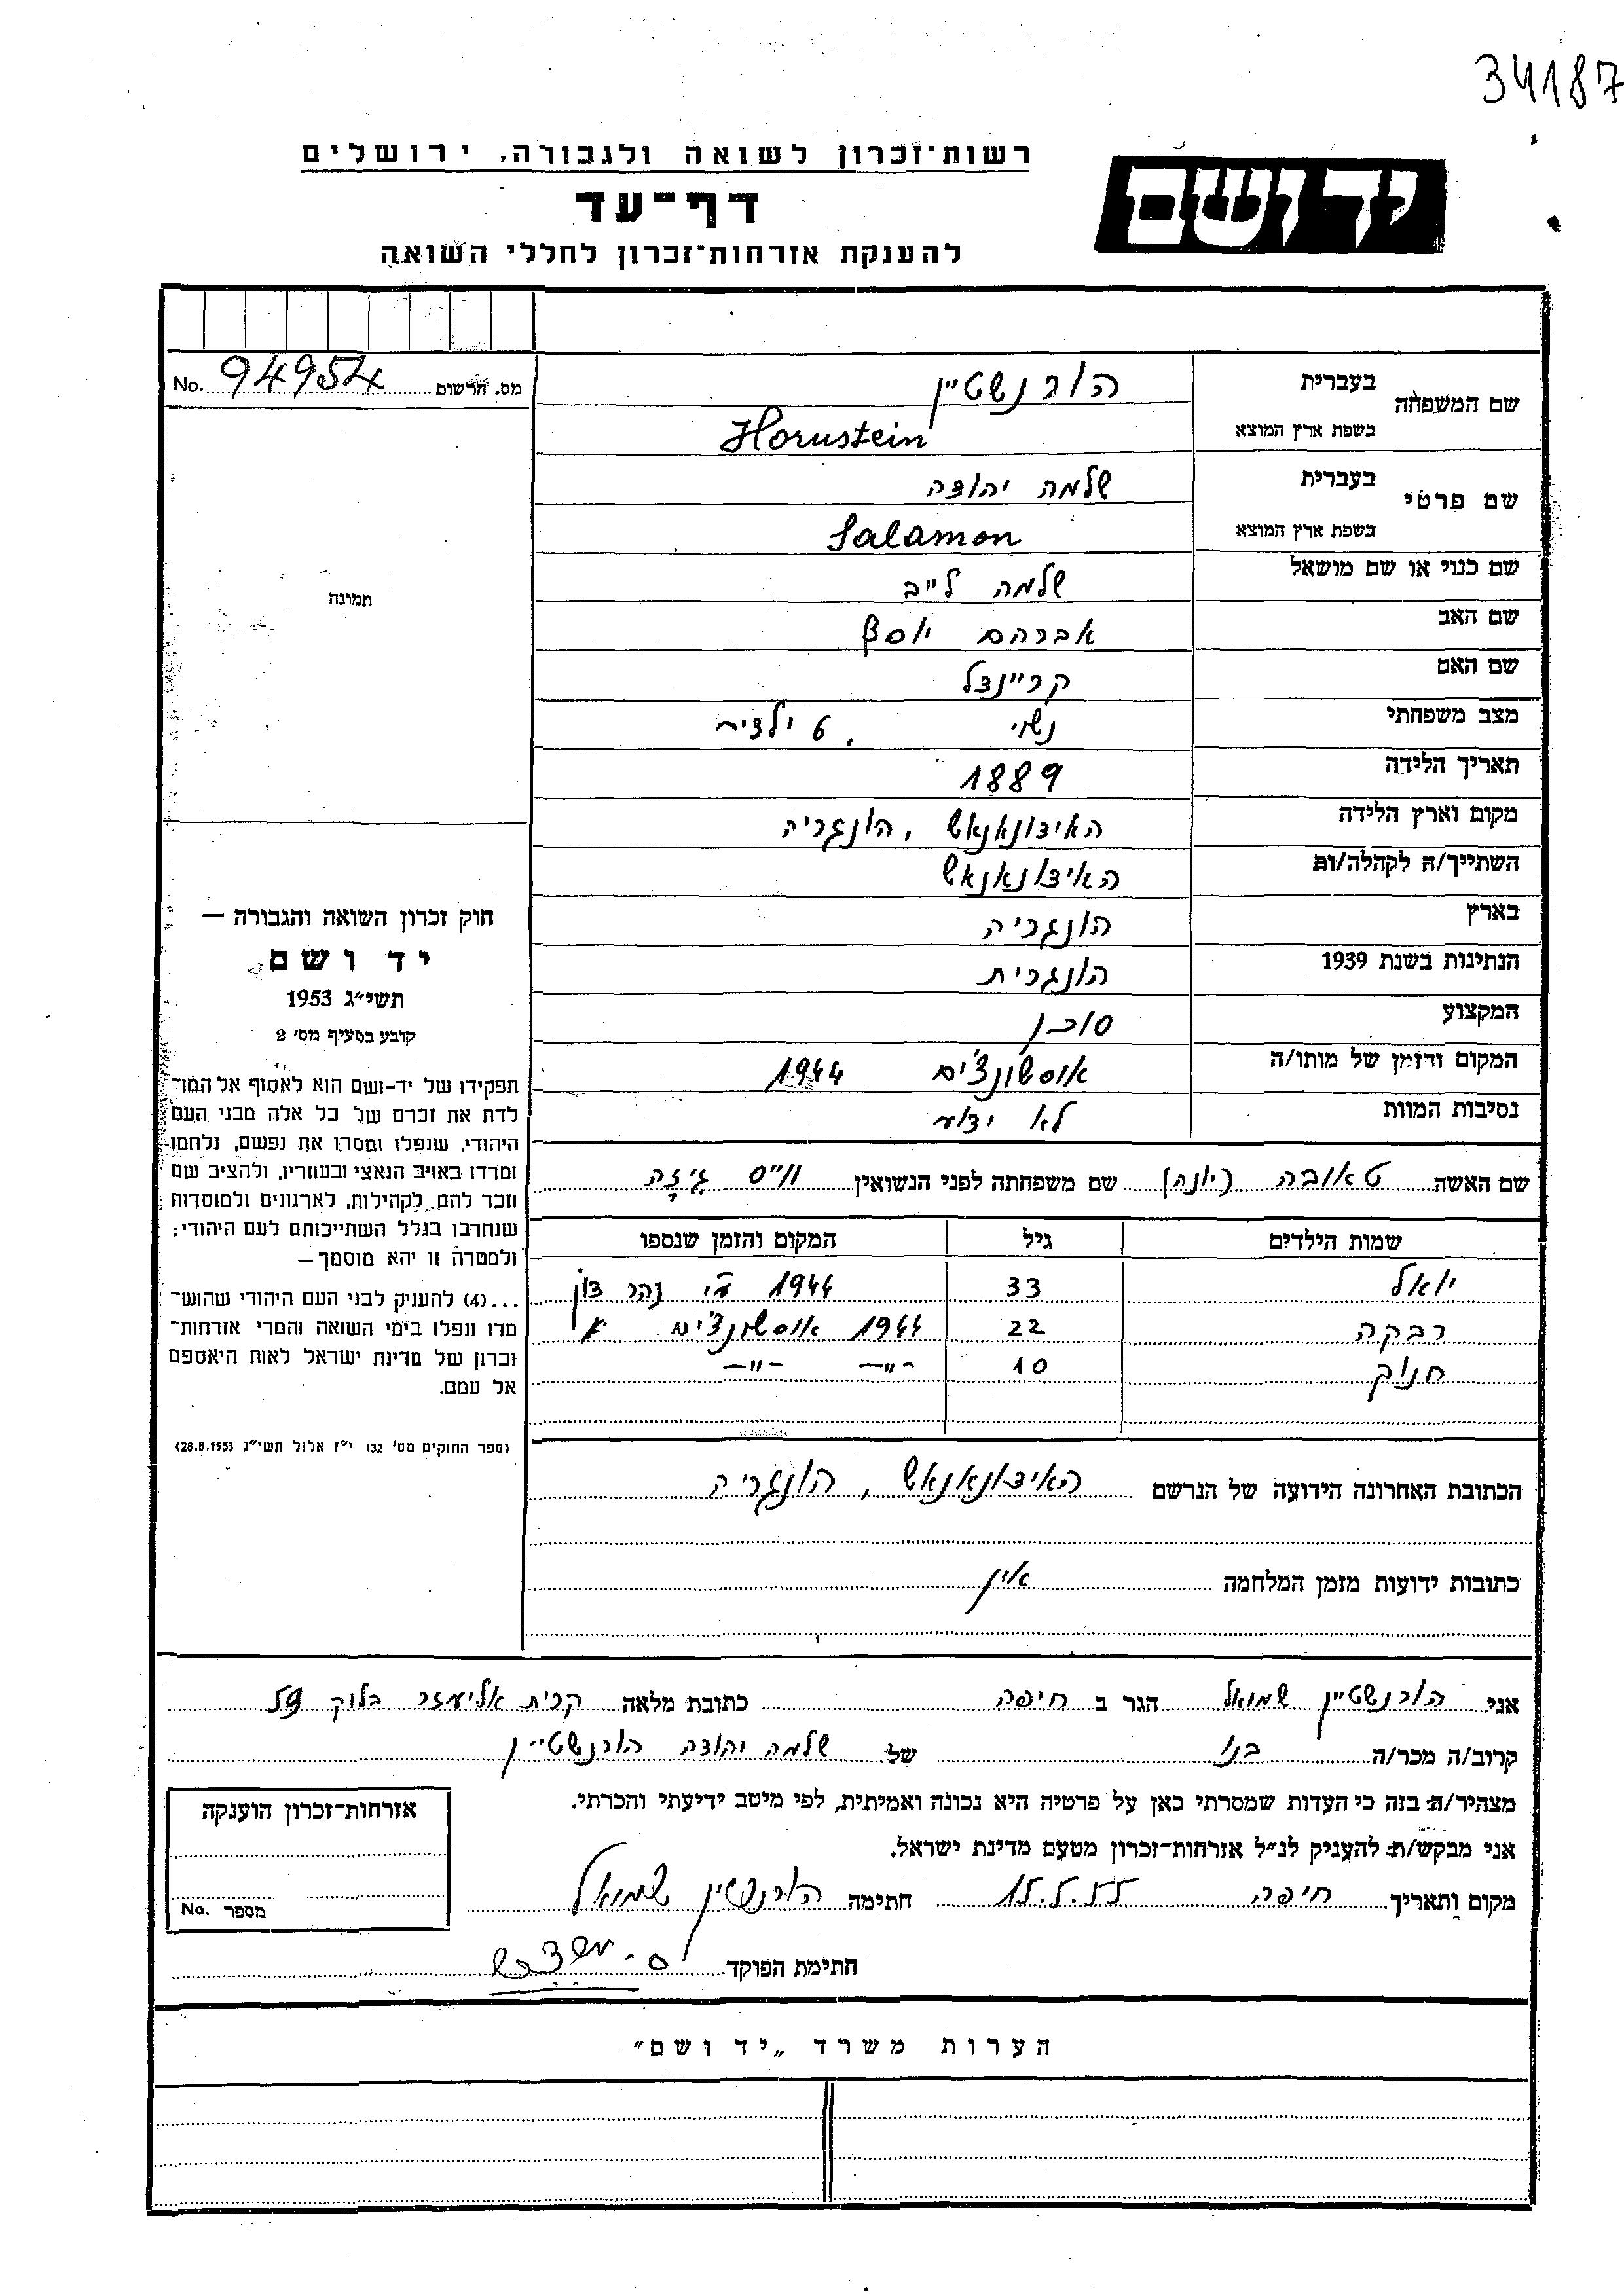 34187
רשות־זכרון לשואה ולגבורה, ירושלים
יד ושם
דף־עד
להענקת אזרחות־זכרון לחללי השואה
מס. הרשום 94954 No.
שם המשפחה
בעברית הורנשטיין
בשפת ארץ המוצא Hornstein
שם פרטי
בעברית שלמה יהודה
בשפת ארץ המוצא Salamon
שם כנוי או שם מושאל שלמה לייב
שם האב אברהם יוסף
שם האם קריינדל
מצב משפחתי נשוי, 6 ילדים
תאריך הלידה 1889
מקום וארץ הלידה האידונאנאש, הונגריה
השתייך/ה לקהלה/ות האידונאנאש
בארץ הונגריה
הנתינות בשנת 1939 הונגרית
המקצוע סוכן
המקום והזמן של מותו/ה אוסשונצ'ים 1944
נסיבות המוות לא ידוע
שם האשה טאובה (יונה) שם משפחתה לפני הנשואין ווייס גיזה
שמות הילדים גיל המקום והזמן שנספו
יואל 33 1944 ע"י נהר דון
רבקה 22 1944 אוסשונצ'ים
חנוך 10 -"- -"-
תמונה
חוק זכרון השואה והגבורה —
יד ושם
תשי״ג 1953
קובע בסעיף מס׳ 2
תפקידו של יד-ושם הוא לאסוף אל המו־
לדת את זכרם של כל אלה מבני העם
היהודי, שנפלו ומסרו את נפשם, נלחמו
ומרדו באויב הנאצי ובעוזריו, ולהציב שם
וזכר להם, לקהילות, לארגונים ולמוסדות
שנחרבו בגלל השתייכותם לעם היהודי;
ולמטרה זו יהא מוסמך —
...(4) להעניק לבני העם היהודי שהוש־
מדו ונפלו בימי השואה והמרי אזרחות־
זכרון של מדינת ישראל לאות היאספם
אל עמם.
(ספר החוקים מס׳ 132 י״ז אלול תשי״ג 28.8.1953)
הכתובת האחרונה הידועה של הנרשם האידונאנאש, הונגריה
כתובות ידועות מזמן המלחמה אין
אני הורנשטיין שמואל הגר ב חיפה כתובת מלאה קרית אליעזר בלוק 59
קרוב/ה מכר/ה בנו של שלמה יהודה הורנשטיין
מצהיר/ה בזה כי העדות שמסרתי כאן על פרטיה היא נכונה ואמיתית, לפי מיטב ידיעתי והכרתי.
אני מבקש/ת להעניק לנ״ל אזרחות־זכרון מטעם מדינת ישראל.
מקום ותאריך חיפה 15.5.55 חתימה הורנשטיין שמואל
חתימת הפוקד
אזרחות־זכרון הוענקה
מספר No.
הערות משרד „יד ושם״